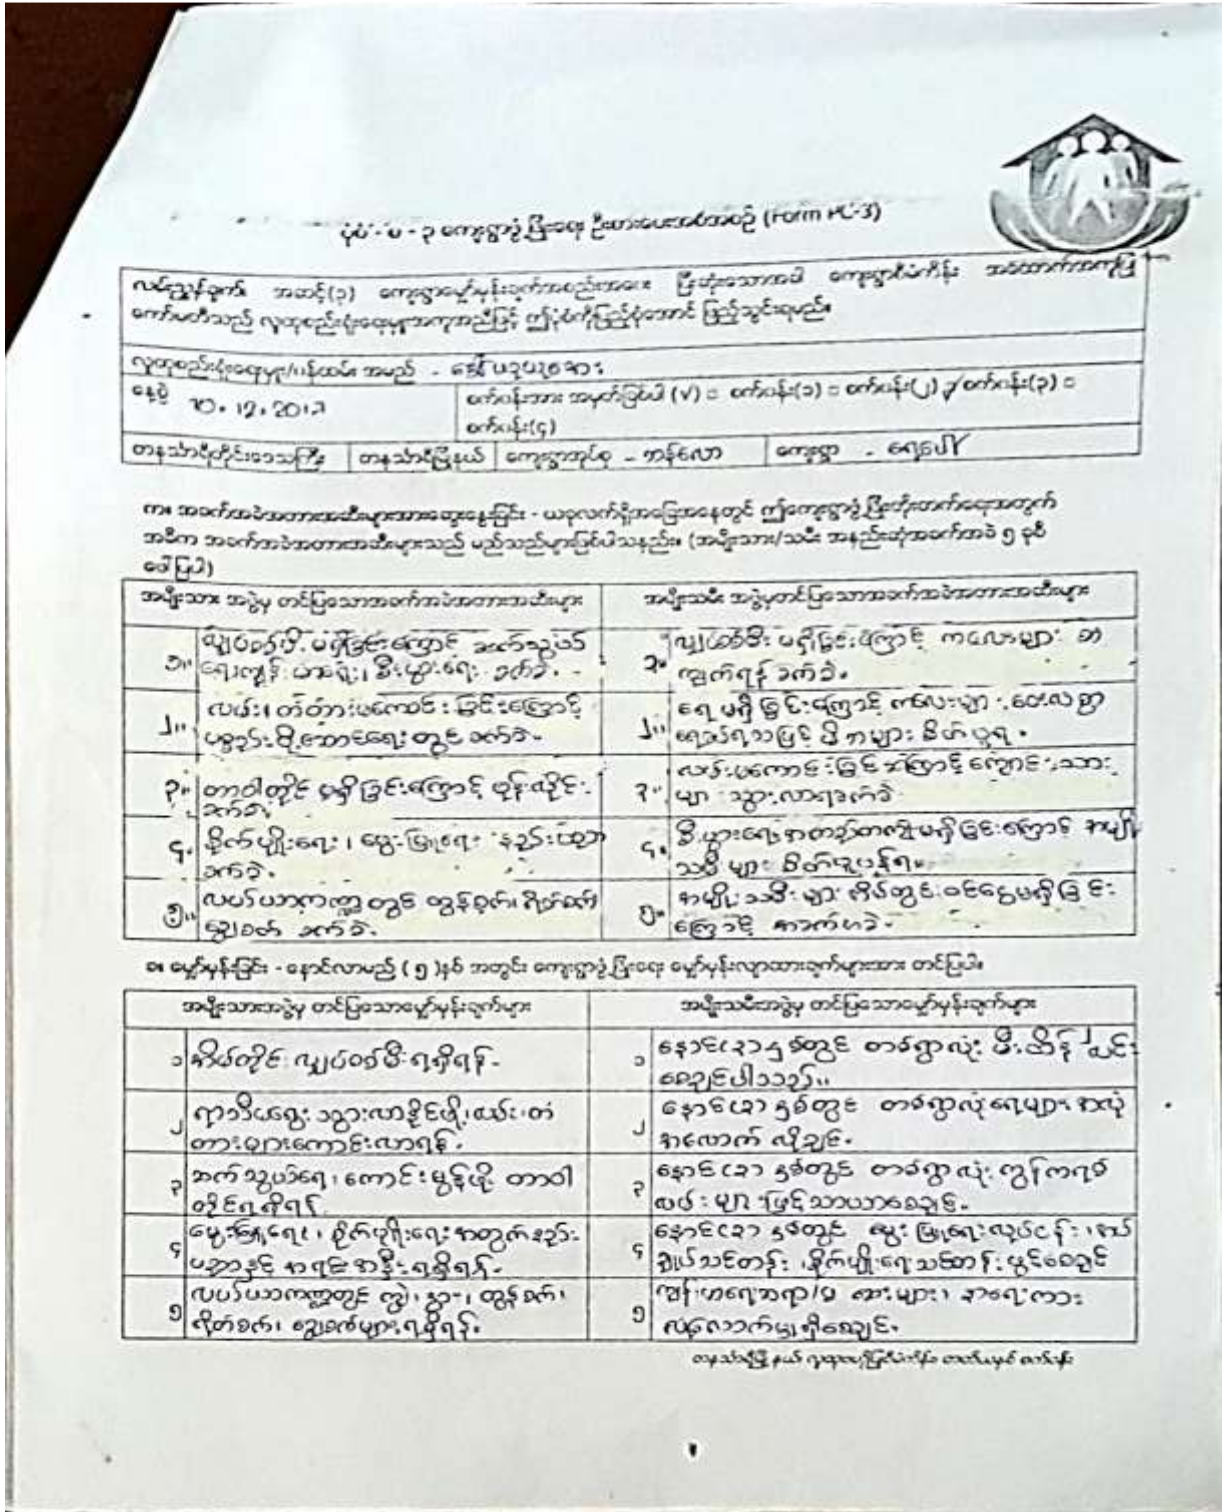 ပုံစံ - ပ - ၃ ကျေးရွာဖွံ့ဖြိုးရေး ဦးစားပေးအစီအစဉ် (Form PC-3)
လမ်းညွှန်ချက်။ အဆင့်(၃) ကျေးရွာမျှော်မှန်းချက်အစည်းအဝေး ပြီးဆုံးသောအခါ ကျေးရွာစီမံကိန်း အထောက်အကူပြု
ကော်မတီသည် လူထုစည်းရုံးရေးမှူးအကူအညီဖြင့် ဤပုံစံကိုပြည့်စုံအောင် ဖြည့်သွင်းရမည်။
လူထုစည်းရုံးရေးမှူး/ဝန်ထမ်း အမည် -
နေ့စွဲ 10.12.2013
စက်ဝန်းအား အမှတ်ခြစ်ပါ (√) □ စက်ဝန်း(၁) □ စက်ဝန်း(၂) စက်ဝန်း(၃) □
စက်ဝန်း(၄)
တနင်္သာရီတိုင်းဒေသကြီး တနင်္သာရီမြို့နယ် ကျေးရွာအုပ်စု - ကျေးရွာ -
က။ အခက်အခဲအတားအဆီးများအားဆွေးနွေးခြင်း - ယခုလက်ရှိအခြေအနေတွင် ဤကျေးရွာဖွံ့ဖြိုးတိုးတက်ရေးအတွက်
အဓိက အခက်အခဲအတားအဆီးများသည် မည်သည်များဖြစ်ပါသနည်း။ (အမျိုးသား/သမီး အနည်းဆုံးအခက်အခဲ ၅ ခုစီ
ဖေါ်ပြပါ)
အမျိုးသား အဖွဲ့မှ တင်ပြသောအခက်အခဲအတားအဆီးများ
အမျိုးသမီး အဖွဲ့မှတင်ပြသောအခက်အခဲအတားအဆီးများ
၁။ လျှပ်စစ်မီး မရှိခြင်းကြောင့် ဆက်သွယ်ရေး စီးပွားရေး ခက်ခဲ.
၁။ လျှပ်စစ်မီး မရှိခြင်းကြောင့် ကလေးများ စာ
ကျက်ရန် ခက်ခဲ.
၂။ လမ်း၊ တံတားမကောင်းခြင်းကြောင့်
ပစ္စည်းပို့ဆောင်ရေးတွင် ခက်ခဲ.
၂။ ရေ မရှိခြင်းကြောင့် ကလေးများ
မိဘများ စိတ်ပူရ.
၃။ တာဝါတိုင် မရှိခြင်းကြောင့် ဖုန်းလိုင်း
ခက်ခဲ.
၃။ လမ်းမကောင်းခြင်းကြောင့် ကျောင်းသား
များ သွားလာရခက်ခဲ
၄. စိုက်ပျိုးရေး၊ မွေးမြူရေး နည်းပညာ
ခက်ခဲ.
၄. စီးပွားရေး မရှိခြင်းကြောင့် အမျိုး
သမီးများ စိတ်
၅။ လယ်ယာကဏ္ဍတွင် ထွန်စက်၊ ရိတ်စက်၊
ချွေစက် ခက်ခဲ.
၅။ အမျိုးသမီးများ အိမ်တွင်းဝင်ငွေမရှိခြင်း
ကြောင့် အခက်အခဲ.
ခ။ မျှော်မှန်းခြင်း - နောင်လာမည် ( ၅ )နှစ် အတွင်း ကျေးရွာဖွံ့ဖြိုးရေး မျှော်မှန်းလျာထားချက်များအား တင်ပြပါ။
အမျိုးသားအဖွဲ့မှ တင်ပြသောမျှော်မှန်းချက်များ
အမျိုးသမီးအဖွဲ့မှ တင်ပြသောမျှော်မှန်းချက်များ
၁ အိမ်တိုင်း လျှပ်စစ်မီးရရှိရန်.
၁ နောင်(၃)နှစ်တွင် တစ်ရွာလုံး မီးထိန်
စေချင်ပါသည်။
၂ ရာသီမရွေး သွားလာနိုင်ဖို့ လမ်း၊ တံ
တားများကောင်းလာရန်.
၂ နောင်(၃)နှစ်တွင် တစ်ရွာလုံးရေများ အလုံ
အလောက် လိုချင်.
၃ ဆက်သွယ်ရေး ကောင်းမွန်ဖို့ တာဝါ
တိုင်ရရှိရန်
၃ နောင်(၃)နှစ်တွင် တစ်ရွာလုံး ကွန်ကရစ်
လမ်းများဖြင့်သာယာစေချင်.
၄ မွေးမြူရေး၊ စိုက်ပျိုးရေးအတွက်နည်း
ပညာနှင့် အရင်းအနှီးရရှိရန်.
၄ နောင်(၃)နှစ်တွင် မွေးမြူရေးလုပ်ငန်း၊ စက်
ချုပ်သင်တန်း၊ စိုက်ပျိုးရေးသင်တန်းဖွင့်စေချင်
၅ လယ်ယာကဏ္ဍတွင် ကျွဲ၊ နွား၊ ထွန်စက်၊
ရိတ်စက်၊ ချွေစက်များရရှိရန်.
၅ ကျန်းမာရေးဆရာ/မ ဆေးများ၊ အရေးကား
လုံလောက်မှုရှိစေချင်.